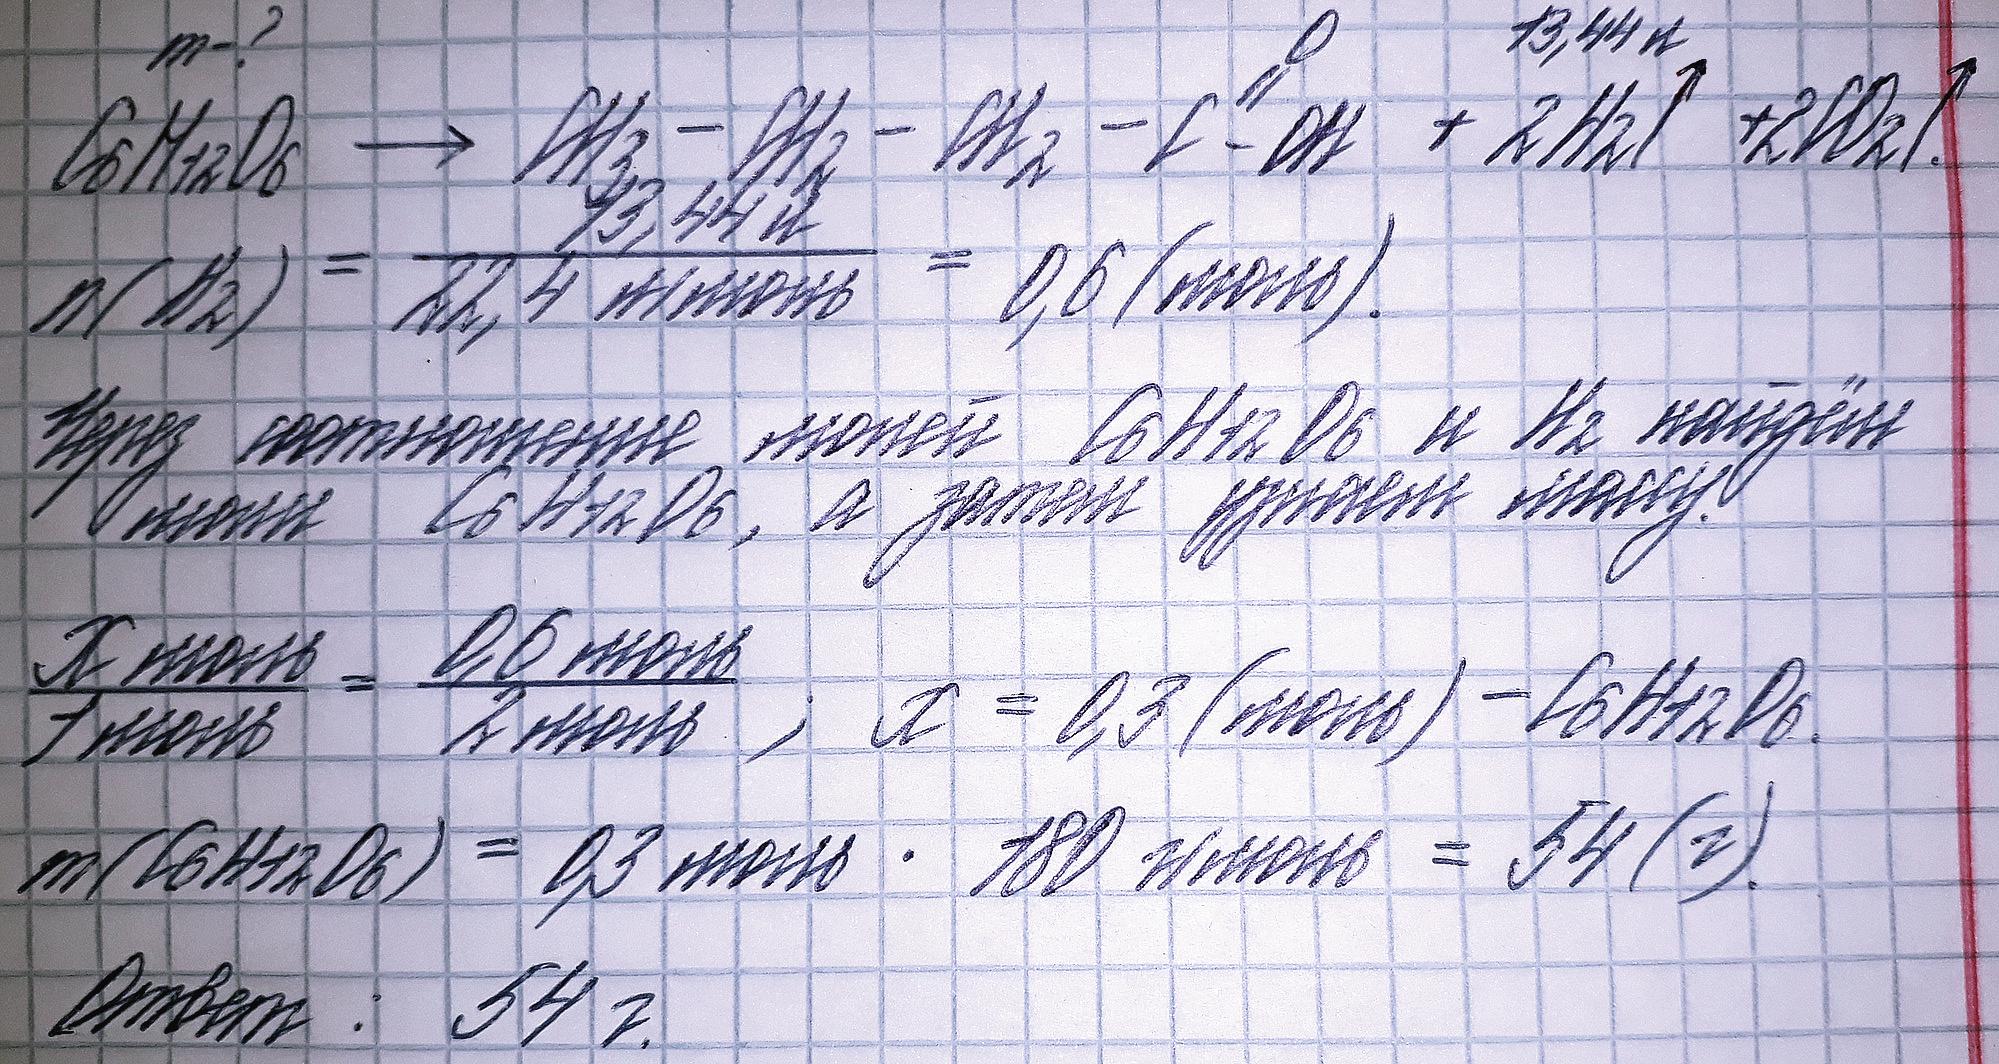 m-? 13,44 л
C6H12O6 → CH3 - CH2 - CH2 - C(=O) - OH + 2H2↑ + 2CO2↑.
n(H2) = 13,44 л / 22,4 л/моль = 0,6 (моль).
Через соотношение молей C6H12O6 и H2 найдём
моли C6H12O6, а затем узнаем массу.
x моль / 1 моль = 0,6 моль / 2 моль ; x = 0,3 (моль) - C6H12O6.
m(C6H12O6) = 0,3 моль · 180 г/моль = 54 (г).
Ответ : 54 г.